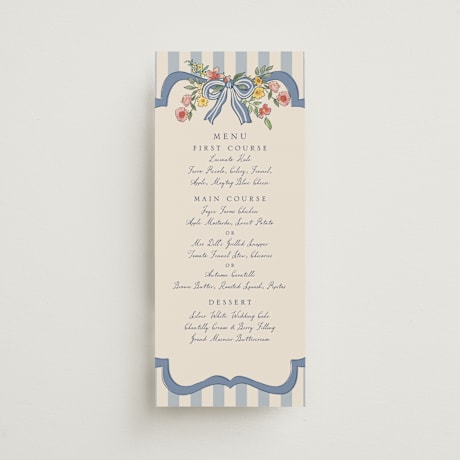 MENU
FIRST COURSE
Lacinato Kale
Farro Piccolo, Celery, Fennel,
Apple, Maytag Blue Cheese
MAIN COURSE
Joyce Farms Chicken
Apple Mostardas, Sweet Potato
OR
Mrs Dell's Grilled Snapper
Tomato Fennel Stew, Chicories
OR
Autumn Cavatelli
Brown Butter, Roasted Squash, Pepitas
DESSERT
Silver White Wedding Cake
Chantilly Cream & Berry Filling
Grand Marnier Buttercream